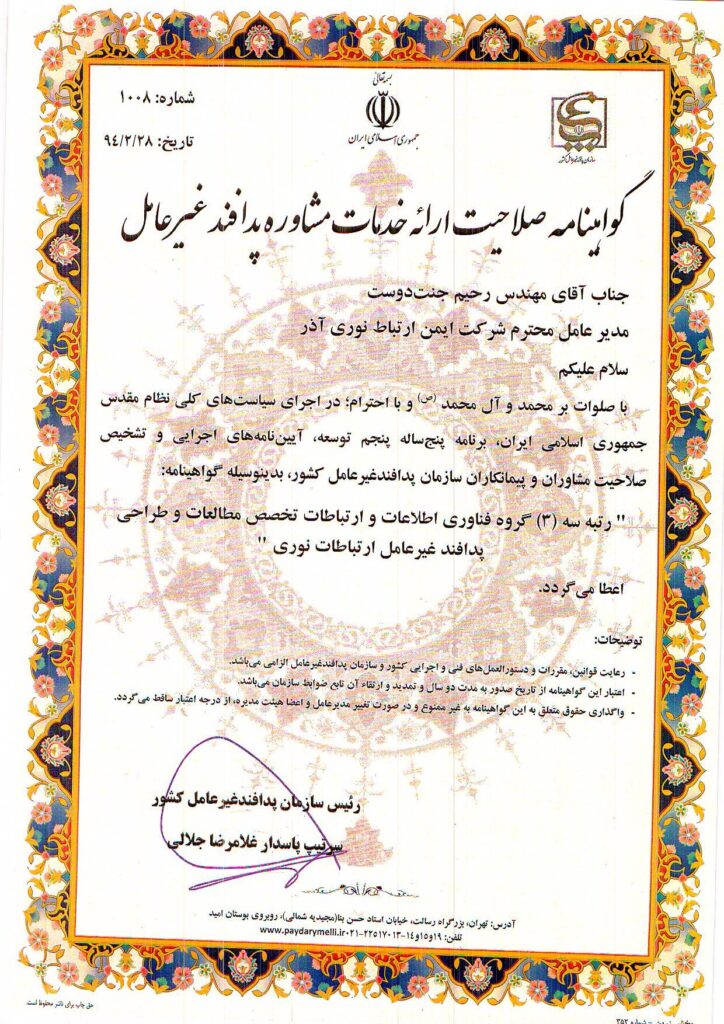 بسمه تعالی
جمهوری اسلامی ایران
شماره: ۱۰۰۸
تاریخ: ۹۴/۲/۲۸
سازمان پدافند غیرعامل کشور
گواهینامه صلاحیت ارائه خدمات مشاوره پدافند غیرعامل
جناب آقای مهندس رحیم جنت‌دوست
مدیر عامل محترم شرکت ایمن ارتباط نوری آذر
سلام علیکم
با صلوات بر محمد و آل محمد (ص) و با احترام؛ در اجرای سیاست‌های کلی نظام مقدس
جمهوری اسلامی ایران، برنامه پنج‌ساله پنجم توسعه، آیین‌نامه‌های اجرایی و تشخیص
صلاحیت مشاوران و پیمانکاران سازمان پدافندغیرعامل کشور، بدینوسیله گواهینامه:
" رتبه سه (۳) گروه فناوری اطلاعات و ارتباطات تخصص مطالعات و طراحی
پدافند غیرعامل ارتباطات نوری "
اعطا می‌گردد.
توضیحات:
- رعایت قوانین، مقررات و دستورالعمل‌های فنی و اجرایی کشور و سازمان پدافندغیرعامل الزامی می‌باشد.
- اعتبار این گواهینامه از تاریخ صدور به مدت دو سال و تمدید و ارتقاء آن تابع ضوابط سازمان می‌باشد.
- واگذاری حقوق متعلق به این گواهینامه به غیر ممنوع و در صورت تغییر مدیرعامل و اعضا هیئت مدیره، از درجه اعتبار ساقط می‌گردد.
رئیس سازمان پدافندغیرعامل کشور
سرتیپ پاسدار غلامرضا جلالی
آدرس: تهران، بزرگراه رسالت، خیابان استاد حسن بنا(مجیدیه شمالی)، روبروی بوستان امید
تلفن: ۱۹و۱۵و۱۴-۲۲۵۱۷۰۱۳-۰۲۱ www.paydarymelli.ir
حق چاپ برای ناشر محفوظ است.
شماره ۳۵۲